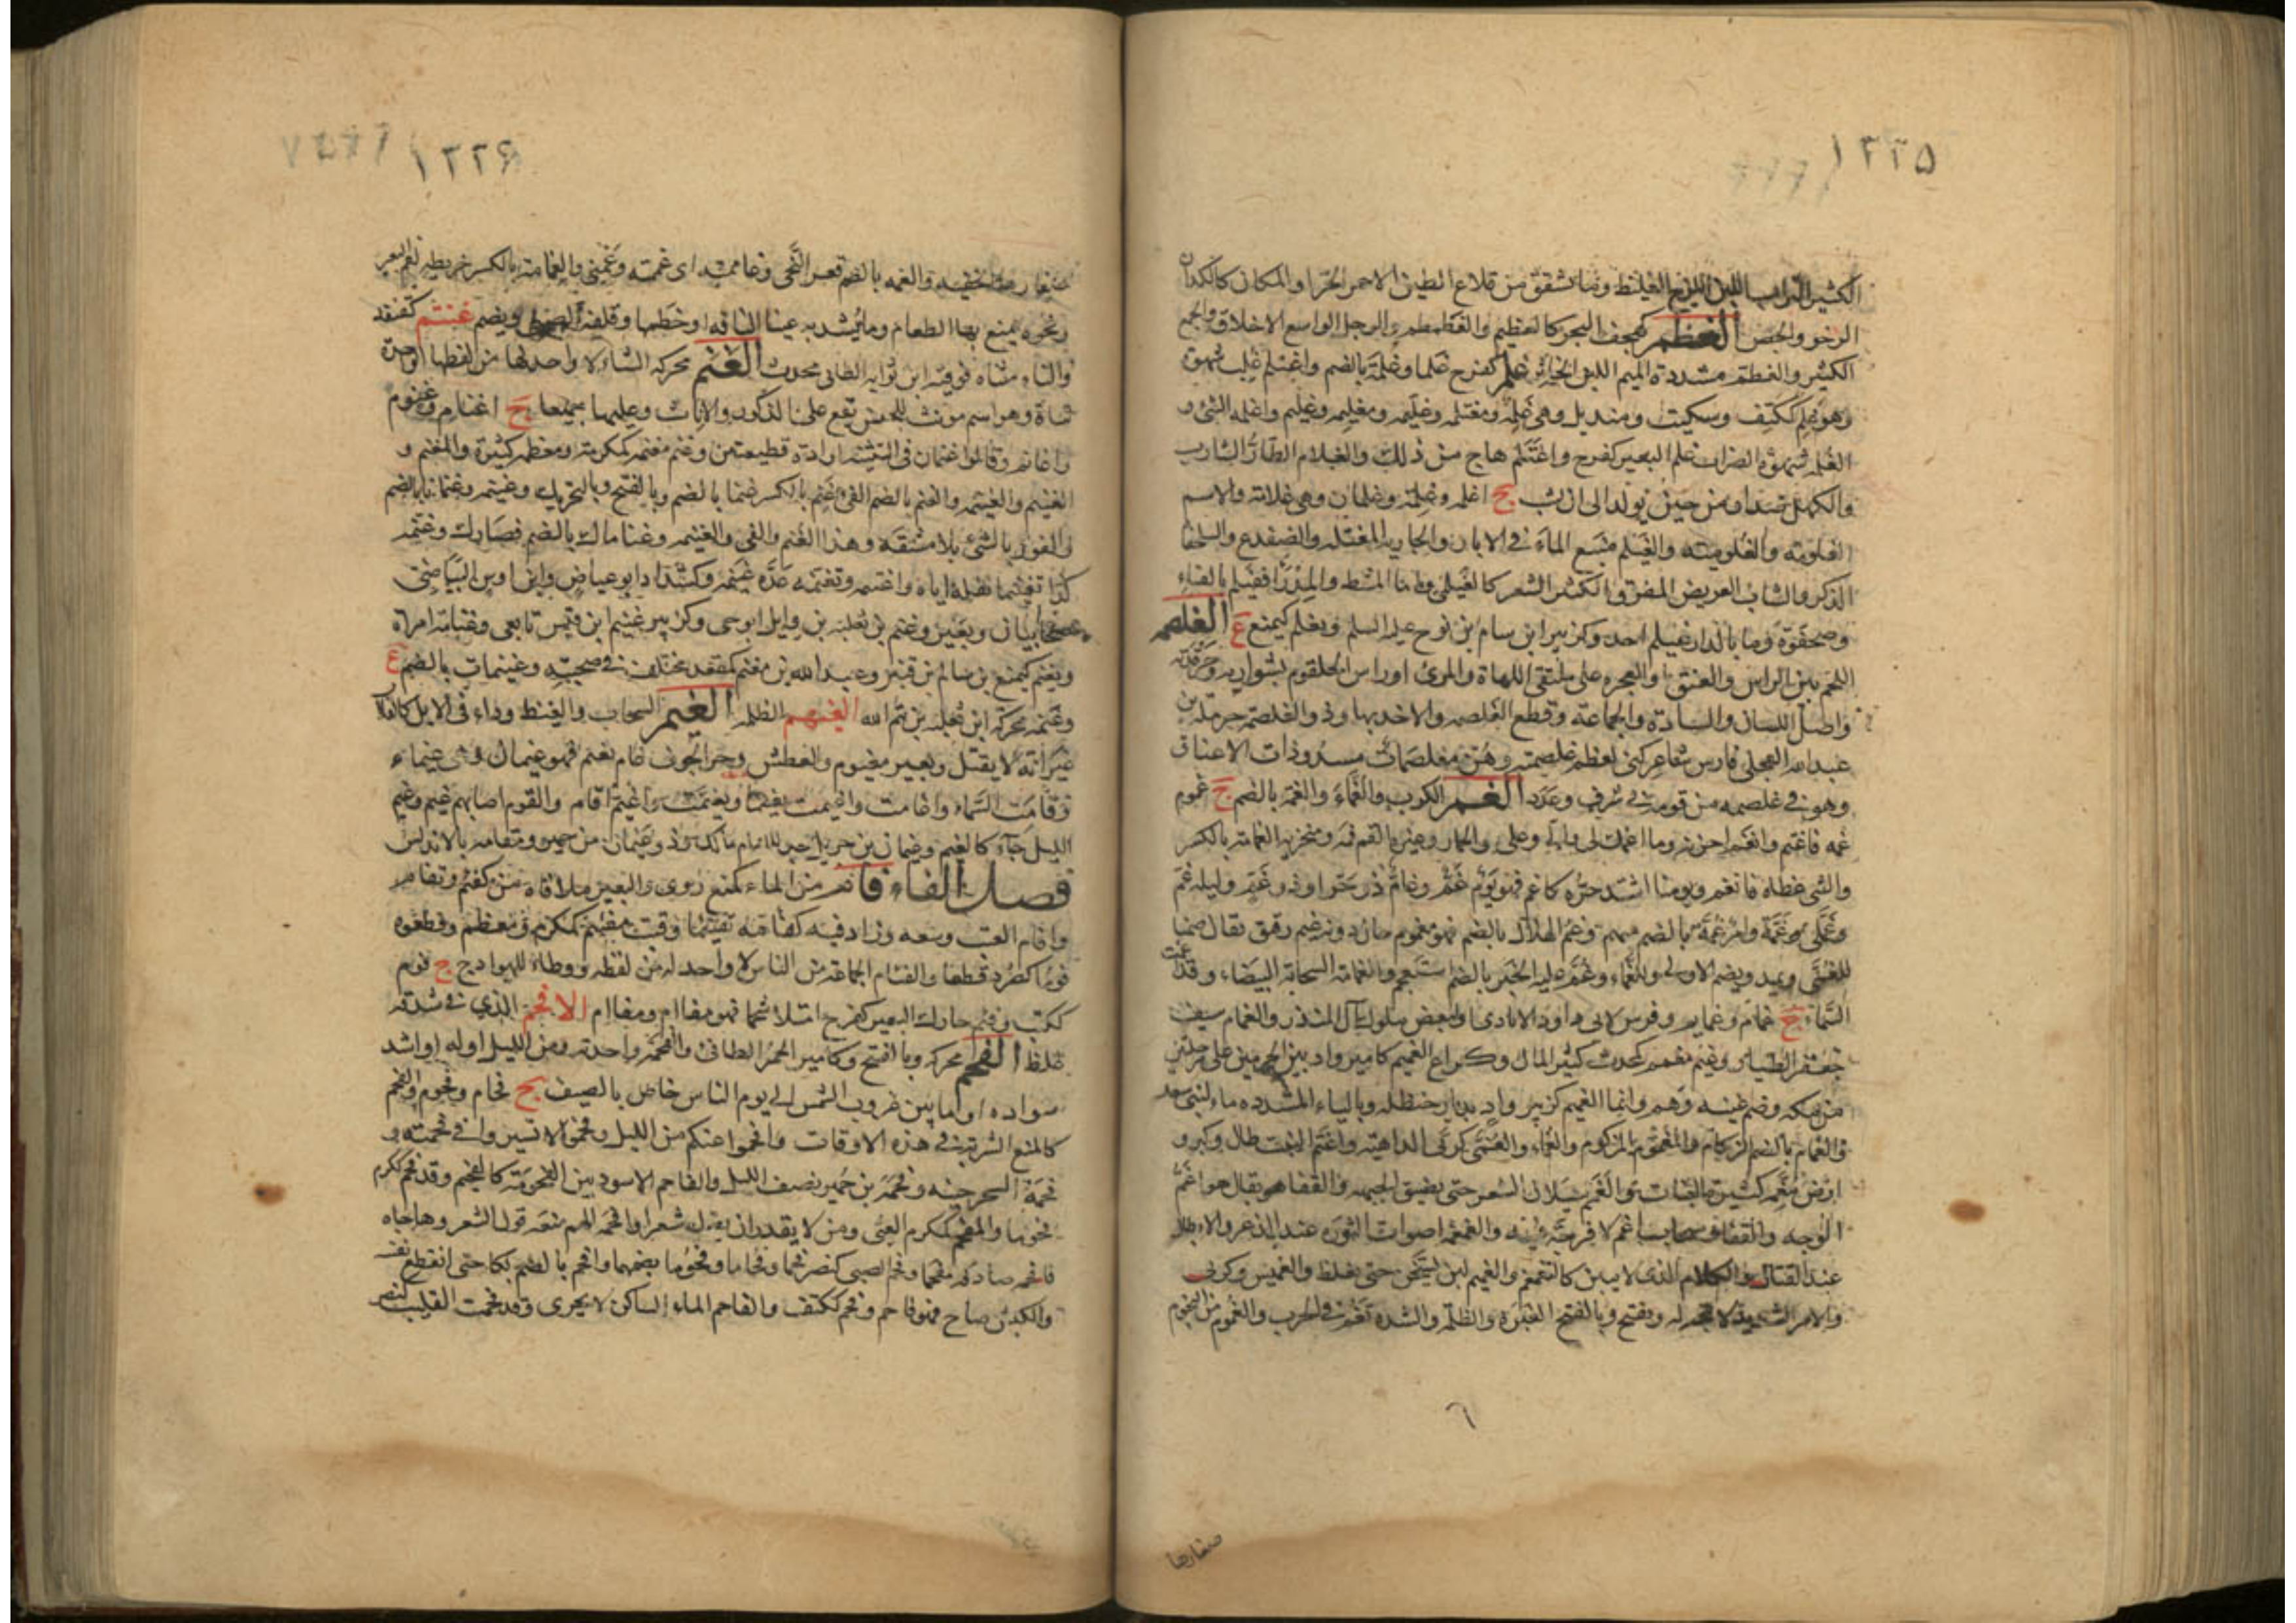 ١٢٢٥
الكثير التراب اللين اللزج الغليظ وما تشقق من قلاع الطين الاحمر الحر او المكان كالكدان
الرخو والجص الغطم كهجف البحر كالغطيم والغطمطم والرجل الواسع الاخلاق والجمع
الكثير والغطمة مشددة الميم اللبن الخاثر غلم كفرح غلما وغلمة بالضم واغتلم غلب شهوة
وهو غلم ككتف وسكيت ومنديل وهي غلمة ومغتلمة وغليمة ومغليمة وغليم واغلمه الشئ و
الغلمة شهوة الضراب غلم البعير كفرح واغتلم هاج من ذلك والغلام الطار الشارب
والكهل ضد او من حين يولد الى ان يشب ج اغلمة وغلمة وغلمان وهي غلامة والاسم
الغلومة والغلومية والغيلم منبع الماء في الابار والجارية المغتلمة والضفدع والسلحفا
الذكر والشاب العريض المفرق الكثير الشعر كالغيلمي واما المشط والمدرا ففيلم بالفاء
وصحفوه وما بالدار غيلم احد وكزبير ابن سام بن نوح عليه السلم ويغلم كيمنع ع الغلصمة
اللحم بين الراس والعنق او العجرة على ملتقى اللهاة والمرئ او راس الحلقوم بشواربه وحرقدته
واصل اللسان والسادة والجماعة وقطع الغلصمة والاخذ بها وذو الغلصمة حرملة بن
عبد الله العجلي فارس شاعر كني لعظم غلصمته وهن مغلصمات مسدودات الاعناق
وهو في غلصمة من قومه في شرف وعدد الغم الكرب والغماء والغمة بالضم ج غموم
غمه فاغتم وانغم احزنه وما اغمك لي والي وعلي والحمار وغيره القم فمه ومنخريه الغمامة بالكسر
والشئ غطاه فانغم ويومنا اشتد حره كاغم فهو يوم غم وغام ذو حر او ذو غم وليلة غم
وغمى وغمة وامر غمة بالضم مبهم وغم الهلال بالضم فهو مغموم حال دونه غيم رقيق يقال صمنا
للغمى ويمد ويضم الاولى وللغماء وغم عليه الخبر بالضم استعجم والغمامة السحابة البيضاء وقد اغمت
السماء ج غمام وغمايم وفرس لابي داود الايادي او لبعض ملوك آل المنذر والغمام سيف
جعفر الطيار وغيم مغمم كمحدث كثير المال وكراع الغميم كامير واد بين الحرمين على مرحلتين
من مكة وضم غينه وهم وانما الغميم كزبير واد بديار حنظلة وبالياء المشددة ماء لبني سعد
والغمام بالضم الزكام والمغموم المزكوم والغماء والغمى كربى الداهية واغتم النبت طال وكبر و
ارض مغمة كثيرة النبات والغمم سيلان الشعر حتى يضيق الجبهة والقفا هو يقال هو اغم
الوجه والقفا وسحاب اغم لا فرجة فيه والغمغمة اصوات الثورة عند الذعر والابطال
عند القتال والكلام الذي لا يبين كالتغمغم والغميم لبن يسخن حتى يغلظ والغميس وكربى
والامر الشديد لا يتجه له ويفتح وبالفتح الغبرة والظلمة والشدة تغم في الحرب والغموم من النجوم
صغارها
١٢٢٦
صغارها الخفية والغمة بالضم قعر النحى وغاممته اى غمته وغمنى والغمامة بالكسر خريطة لفم البعير
ونحوه يمنع بها الطعام وما يشد به عينا الناقة او خطمها وقلفة الصبي ويضم غنثم كقنفذ
والثاء مثناة فوقية ابن ثوابة الطائى محدث الغنم محركة الشاء لا واحد لها من لفظها الواحدة
شاة وهو اسم مونث للجنس يقع على الذكور والاناث وعليهما جميعا ج اغنام وغنوم
واغانم وقالوا غنمان في التثنية ارادة قطيعتين وغنم مغنمة كمكرمة ومعظمة كثيرة والمغنم و
الغنيم والغنيمة والغنم بالضم الفئ غنم بالكسر غنما بالضم وبالفتح وبالتحريك وغنيمة وغنمانا بالضم
والفوز بالشئ بلا مشقة وهذا الغنم والفي والغنيمة وغناماك بالضم قصارك وغنمه
كذا تغنيما نفله اياه واغتنمه وتغنمه عده غنيمة وكشداد ابو عياض وابن اوس البياضي
صحابيان وبعير وغنم بن تغلبة بن وايل ابو حى وكزبير غنيم ابن قيس تابعى وغنامة امراة
ويغنم كيمنع بن سالم بن قنبر وعبد الله بن مغنم كمقعد مختلف في صحبته وغنيمات بالضم ع
وغنمة محركة ابن ثعلبة بن تيم الله الغيهم الظلمة الغيم السحاب والغيظ وداء في الابل كالقلاب
غير انه لا يقتل وبعير مغيوم والعطش وحر الجوف غام يغيم فهو غيمان وهى غيماء
وقامت السماء واغامت واغيمت وتغيمت واغيم اقام والقوم اصابهم غيم وغيم
الليل جاء كالغيم وغيمان بن جد للامام مالك وذو غيمان من حمير ومغامة بالاندلس
فصل الفاء فام من الماء كمنع روى والبعير ملا فاه من كفئم وتفام
وافام القتب وسعه وزاد فيه كفامه تفئيما وقتب مفئم كمكرم ومعظم وقطعوه
فوما كصرد قطعا والفئام الجماعة من الناس لا واحد له من لفظه ووطاء للهوادج ج فوم
ككتب وفئم حارك البعير كفرح امتلا شحما فهو مفام ومفام الافجم الذي في شدقه
غلظ الفحم محركة وبا الفتح وكامير الجمر الطافئ والفحمة واحدته ومن الليل اوله او اشد
سواده او ما بين غروب الشمس الى نوم الناس خاص بالصيف ج فحام وفحوم والفحم
كالمنع الشرب في هذه الاوقات وافحموا عنكم من الليل وفحموا لا تسيروا في فحمته و
فحمة السحر حينه وفحمة بن جمير نصف الليل والفاحم الاسود بين الفحومة كالفحيم وقد فحم ككرم
فحوما والمفحم كمكرم العيي ومن لا يقدر ان يقول شعرا وافحمه الهم منعه قول الشعر وهاجاه
فافحمه صادفه مفحما وفحم الصبى كنصر فحما وفحاما وفحوما بضمهما وافحم بالضم بكا حتى انقطع نفسه
والكبش صاح فهو فاحم وفحم ككتف والفاحم الماء الساكن لا يجرى وقد فحمت القليب كنصر